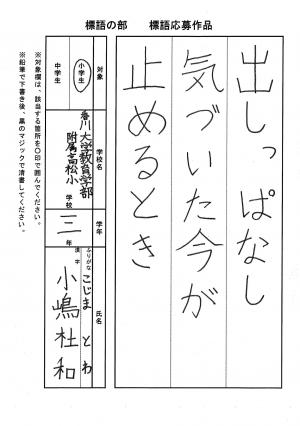 標語の部　標語応募作品
出しっぱなし
気づいた今が
止めるとき
対象
小学生
中学生
学校名
香川大学教育学部
附属高松小
学校
学年
三年
氏名
ふりがな
こじま　とわ
漢字
小嶋杜和
※対象欄は、該当する箇所を〇印で囲んでください。
※鉛筆で下書き後、黒のマジックで清書してください。